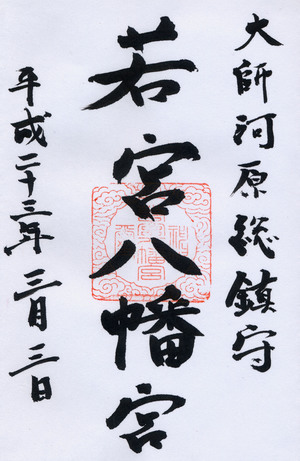 大師河原総鎮守
若宮八幡宮
平成二十三年三月三日